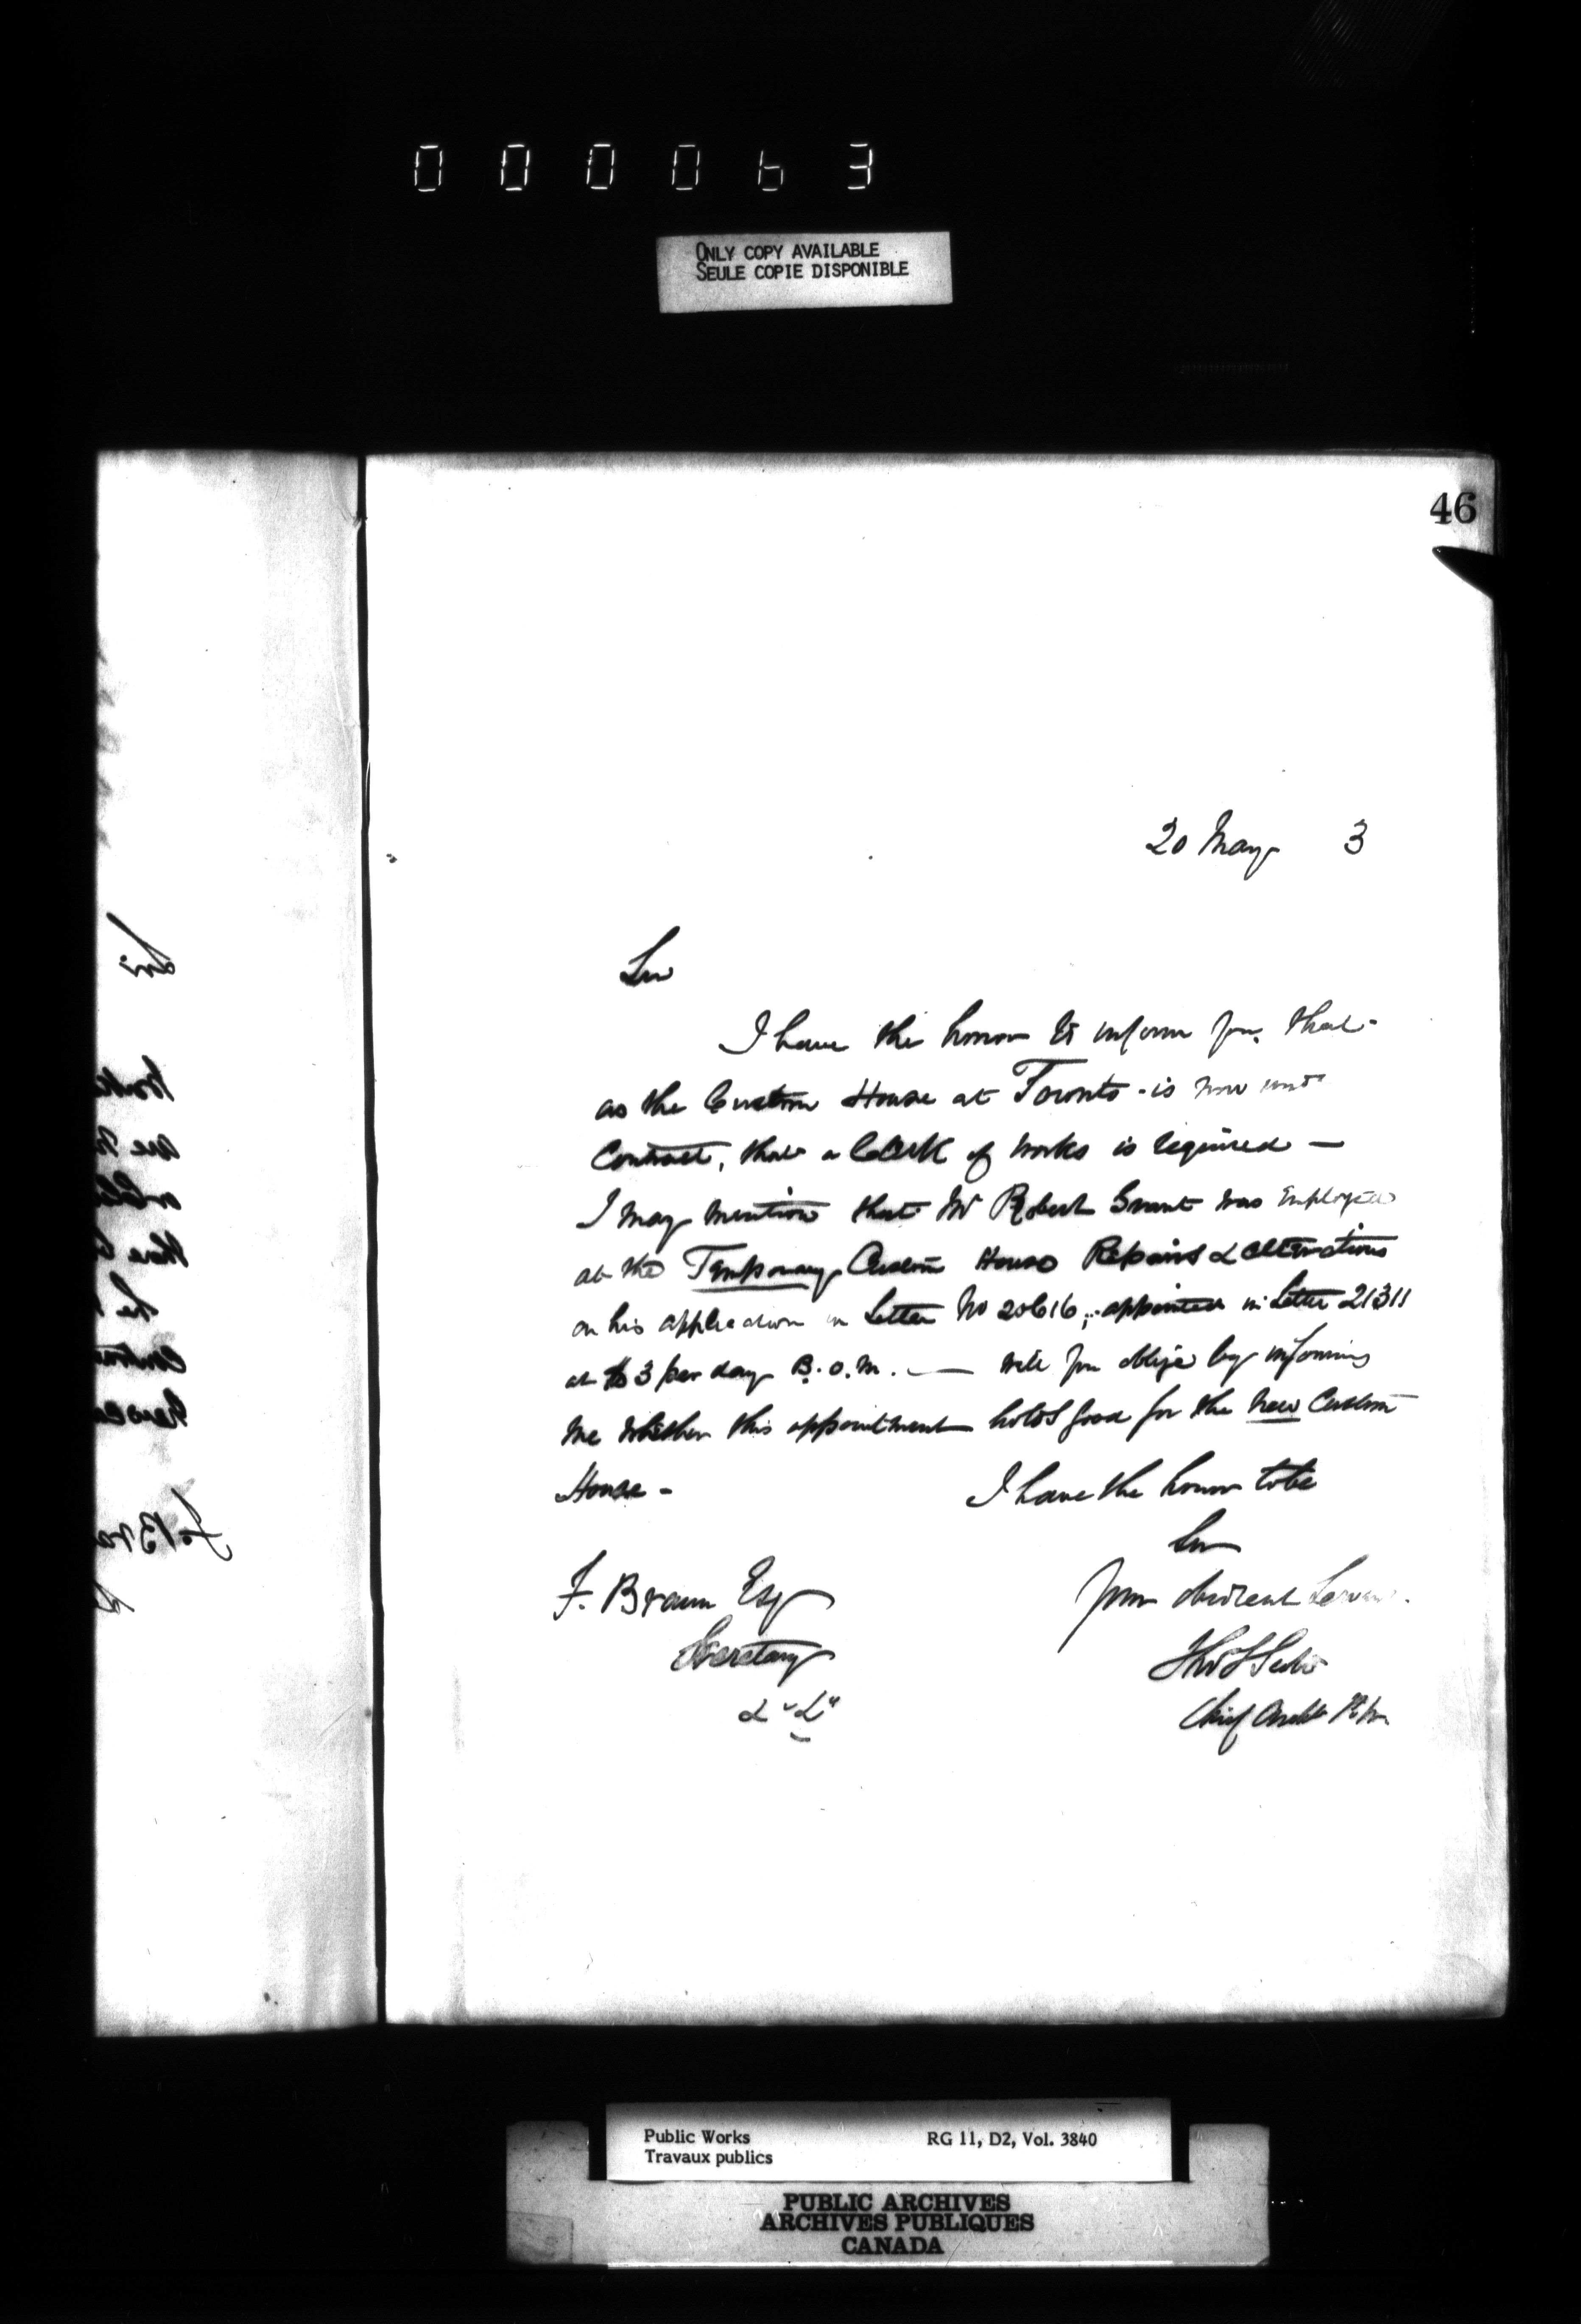 000063
ONLY COPY AVAILABLE
SEULE COPIE DISPONIBLE
46
20 May 3
Sir
I have the honor to inform you, that
as the Custom House at Toronto - is now under
Contract, that a Clerk of Works is required —
I may mention that Mr Robert Grant was employed
at the Temporary Custom House Repairs & alterations
on his application in Letter No 20616, appointed in Letter 21311
at $3 per day B.O.M. — Will you oblige by informing
me whether this appointment holds good for the New Custom
House -
I have the honor to be
Sir
Your obedient Servant
F. Braun Esq
Secretary
& " & "
Thos S Scott
Chief Archt P.W.
Public Works
Travaux publics
RG 11, D2, Vol. 3840
PUBLIC ARCHIVES
ARCHIVES PUBLIQUES
CANADA